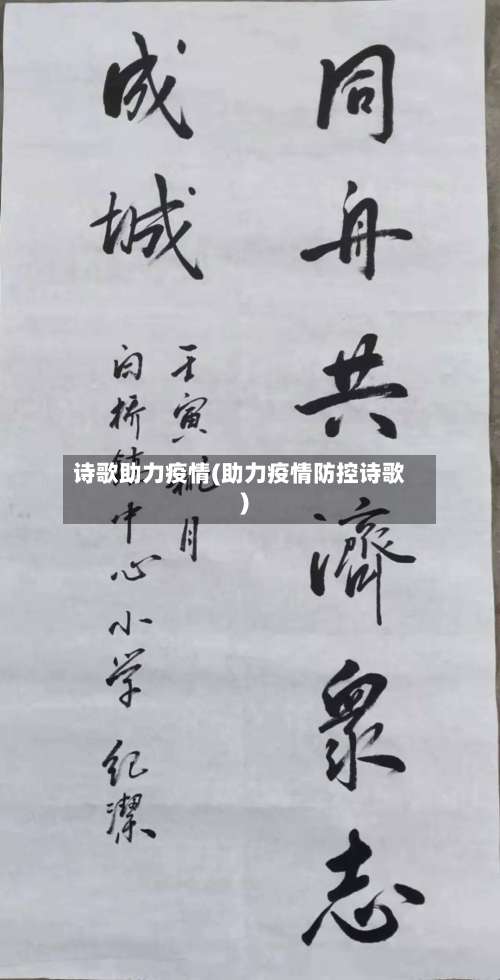 同舟共濟衆志
成城
壬寅桃月
白桥镇中心小学 纪潔
诗歌助力疫情(助力疫情防控诗歌
)